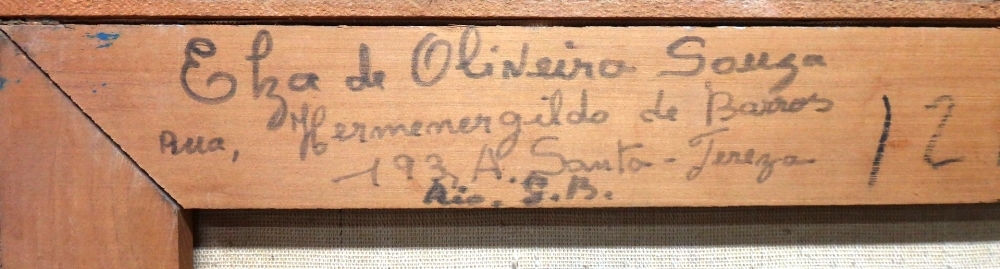 Elza de Oliveira Souza
Rua, Hermenergildo de Barros
193, A. Santa-Tereza
Rio. G.B.
12